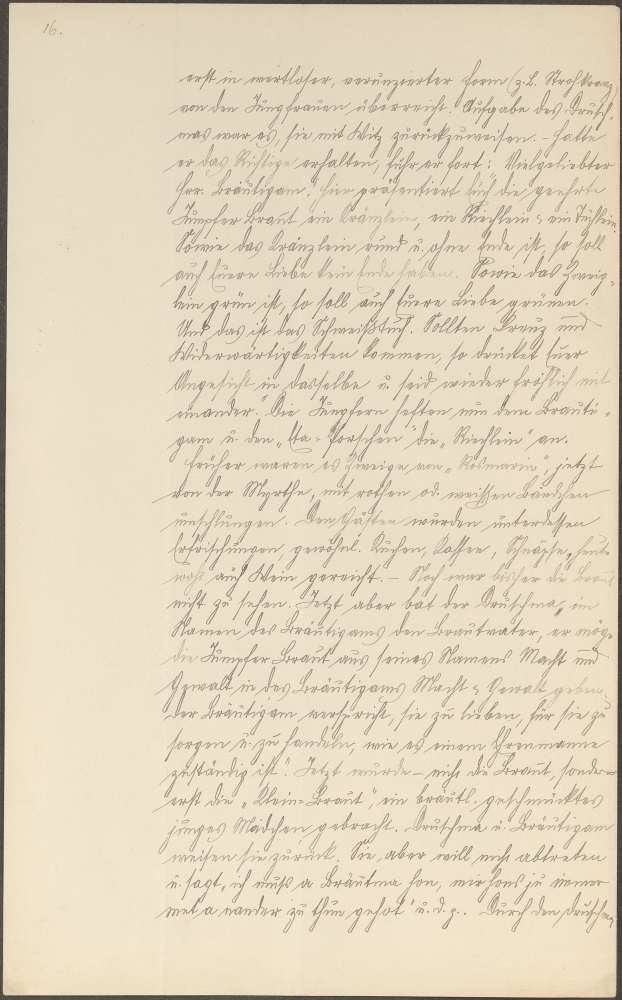 16.
erst in wertloser, verunzierter Form (z.B. Strohkranz)
von den Jungfrauen überreicht. Aufgabe des Drusch-
mas war es, sie mit Witz zurückzuweisen. - Hatte
er das Richtige erhalten, fuhr er fort: "Vielgeliebter
Hrr. Bräutigam! Hier präsentiert Euch die geehrte
Jungfer Braut ein Kränzlein, ein Riechlein & ein Tüchlein.
Sowie das Kränzlein rund u. ohne Ende ist, so soll
auch Euere Liebe kein Ende haben. Sowie das Zweig-
lein grün ist, so soll auch Euere Liebe grünen.
Und das ist das Schweißtuch. Sollten Kreuz und
Widerwärtigkeiten kommen, so drücket Euer
Angesicht in dasselbe u. seid wieder fröhlich mit
einander." Die Jungfern heften nun dem Bräuti-
gam u. den "die "Riechlein" an.
Früher waren es Zweige von "Rosmarin", jetzt
von der Myrthe, mit rothen od. weißen Bändchen
umschlungen. Den Gästen wurden unterdessen
Erfrischungen, gewöhnl. Kuchen, Kaffee, Schnäpse, heute
wohl auch Wein gereicht. - Noch war bisher die Braut
nicht zu sehen. Jetzt aber bat der Druschma, im
Namen des Bräutigams den Brautvater, er möge
die Jungfer Braut "aus seines Namens Macht und
Gewalt in des Bräutigams Macht & Gewalt geben.
Der Bräutigam verspricht, sie zu lieben, für sie zu
sorgen u. zu handeln, wie es einem Ehrenmanne
zuständig ist". Jetzt wurde - nicht die Braut, sondern
erst die "Klein-Braut", ein bräutl. geschmücktes
junges Mädchen gebracht. Druschma u. Bräutigam
weisen sie zurück. Sie aber will nicht abtreten
u. sagt, ich muß a Bräutma hon, mir hons ju immer
met a nander zu thun gehot" u. d. g.. Durch den Druschma